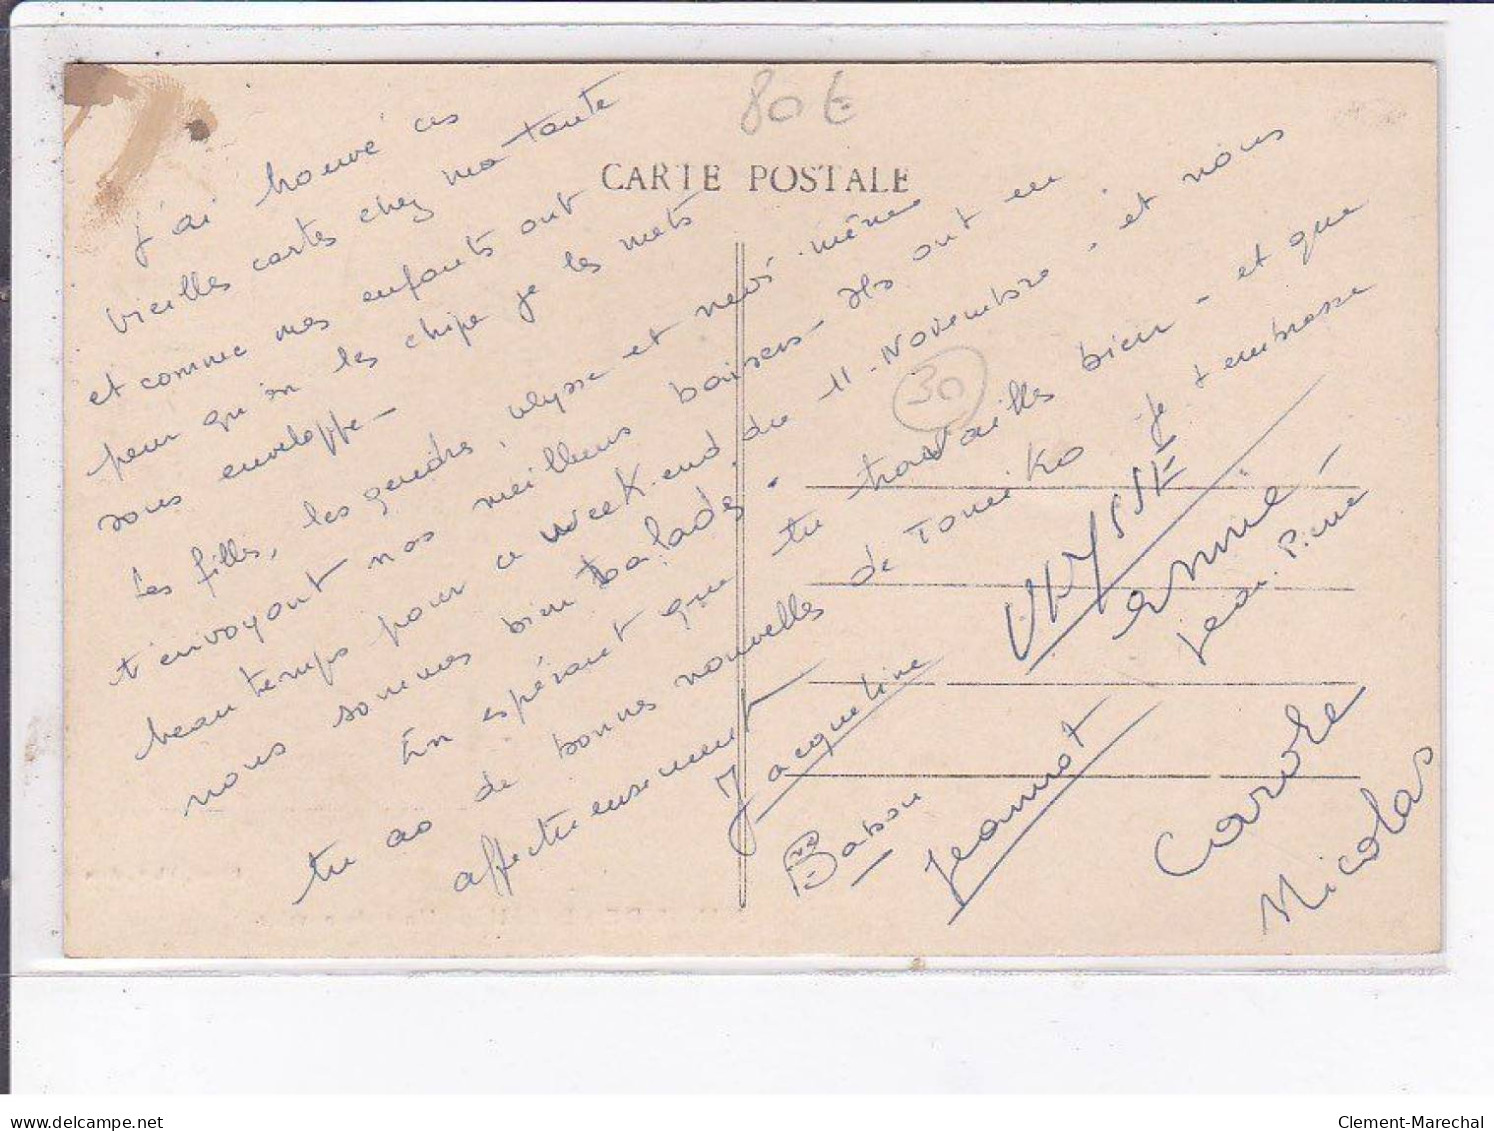 80 €
CARTE POSTALE
30
J'ai trouvé ces
vieilles cartes chez ma tante
et comme mes enfants ont
peur qu'on les chipe je les mets
sous enveloppe -
Les filles, les gendres, Ulysse et nous même
t'envoyont nos meilleurs baisers - Ils ont eu
beau temps pour ce week-end du 11 Novembre - et nous
nous sommes bien balades.
En espérant que tu travailles bien - et que
tu as de bonnes nouvelles de Toniko je t'embrasse
affectueusement
Jacqueline
ULYSSE
Anne
Jean-Pierre
Babou
Jeannot
Carole
Nicolas
delcampe.net
Clement-Marechal